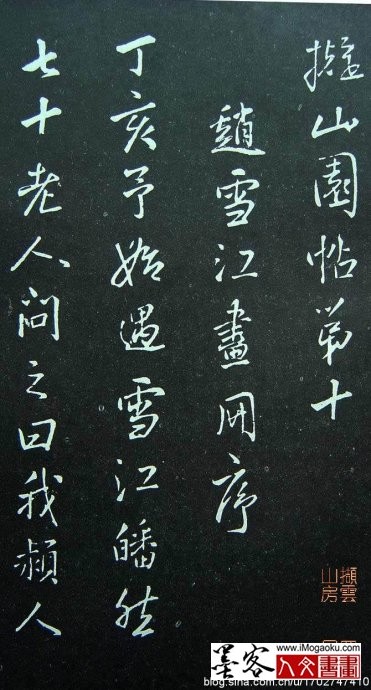 擬山園帖第十
趙雪江畫冊序
丁亥予始遇雪江皤然
七十老人問之曰我潁人
擷雲
山房
www.iMogaoku.com
墨客
人文書畫
blog.sina.com.cn/u/1702747410